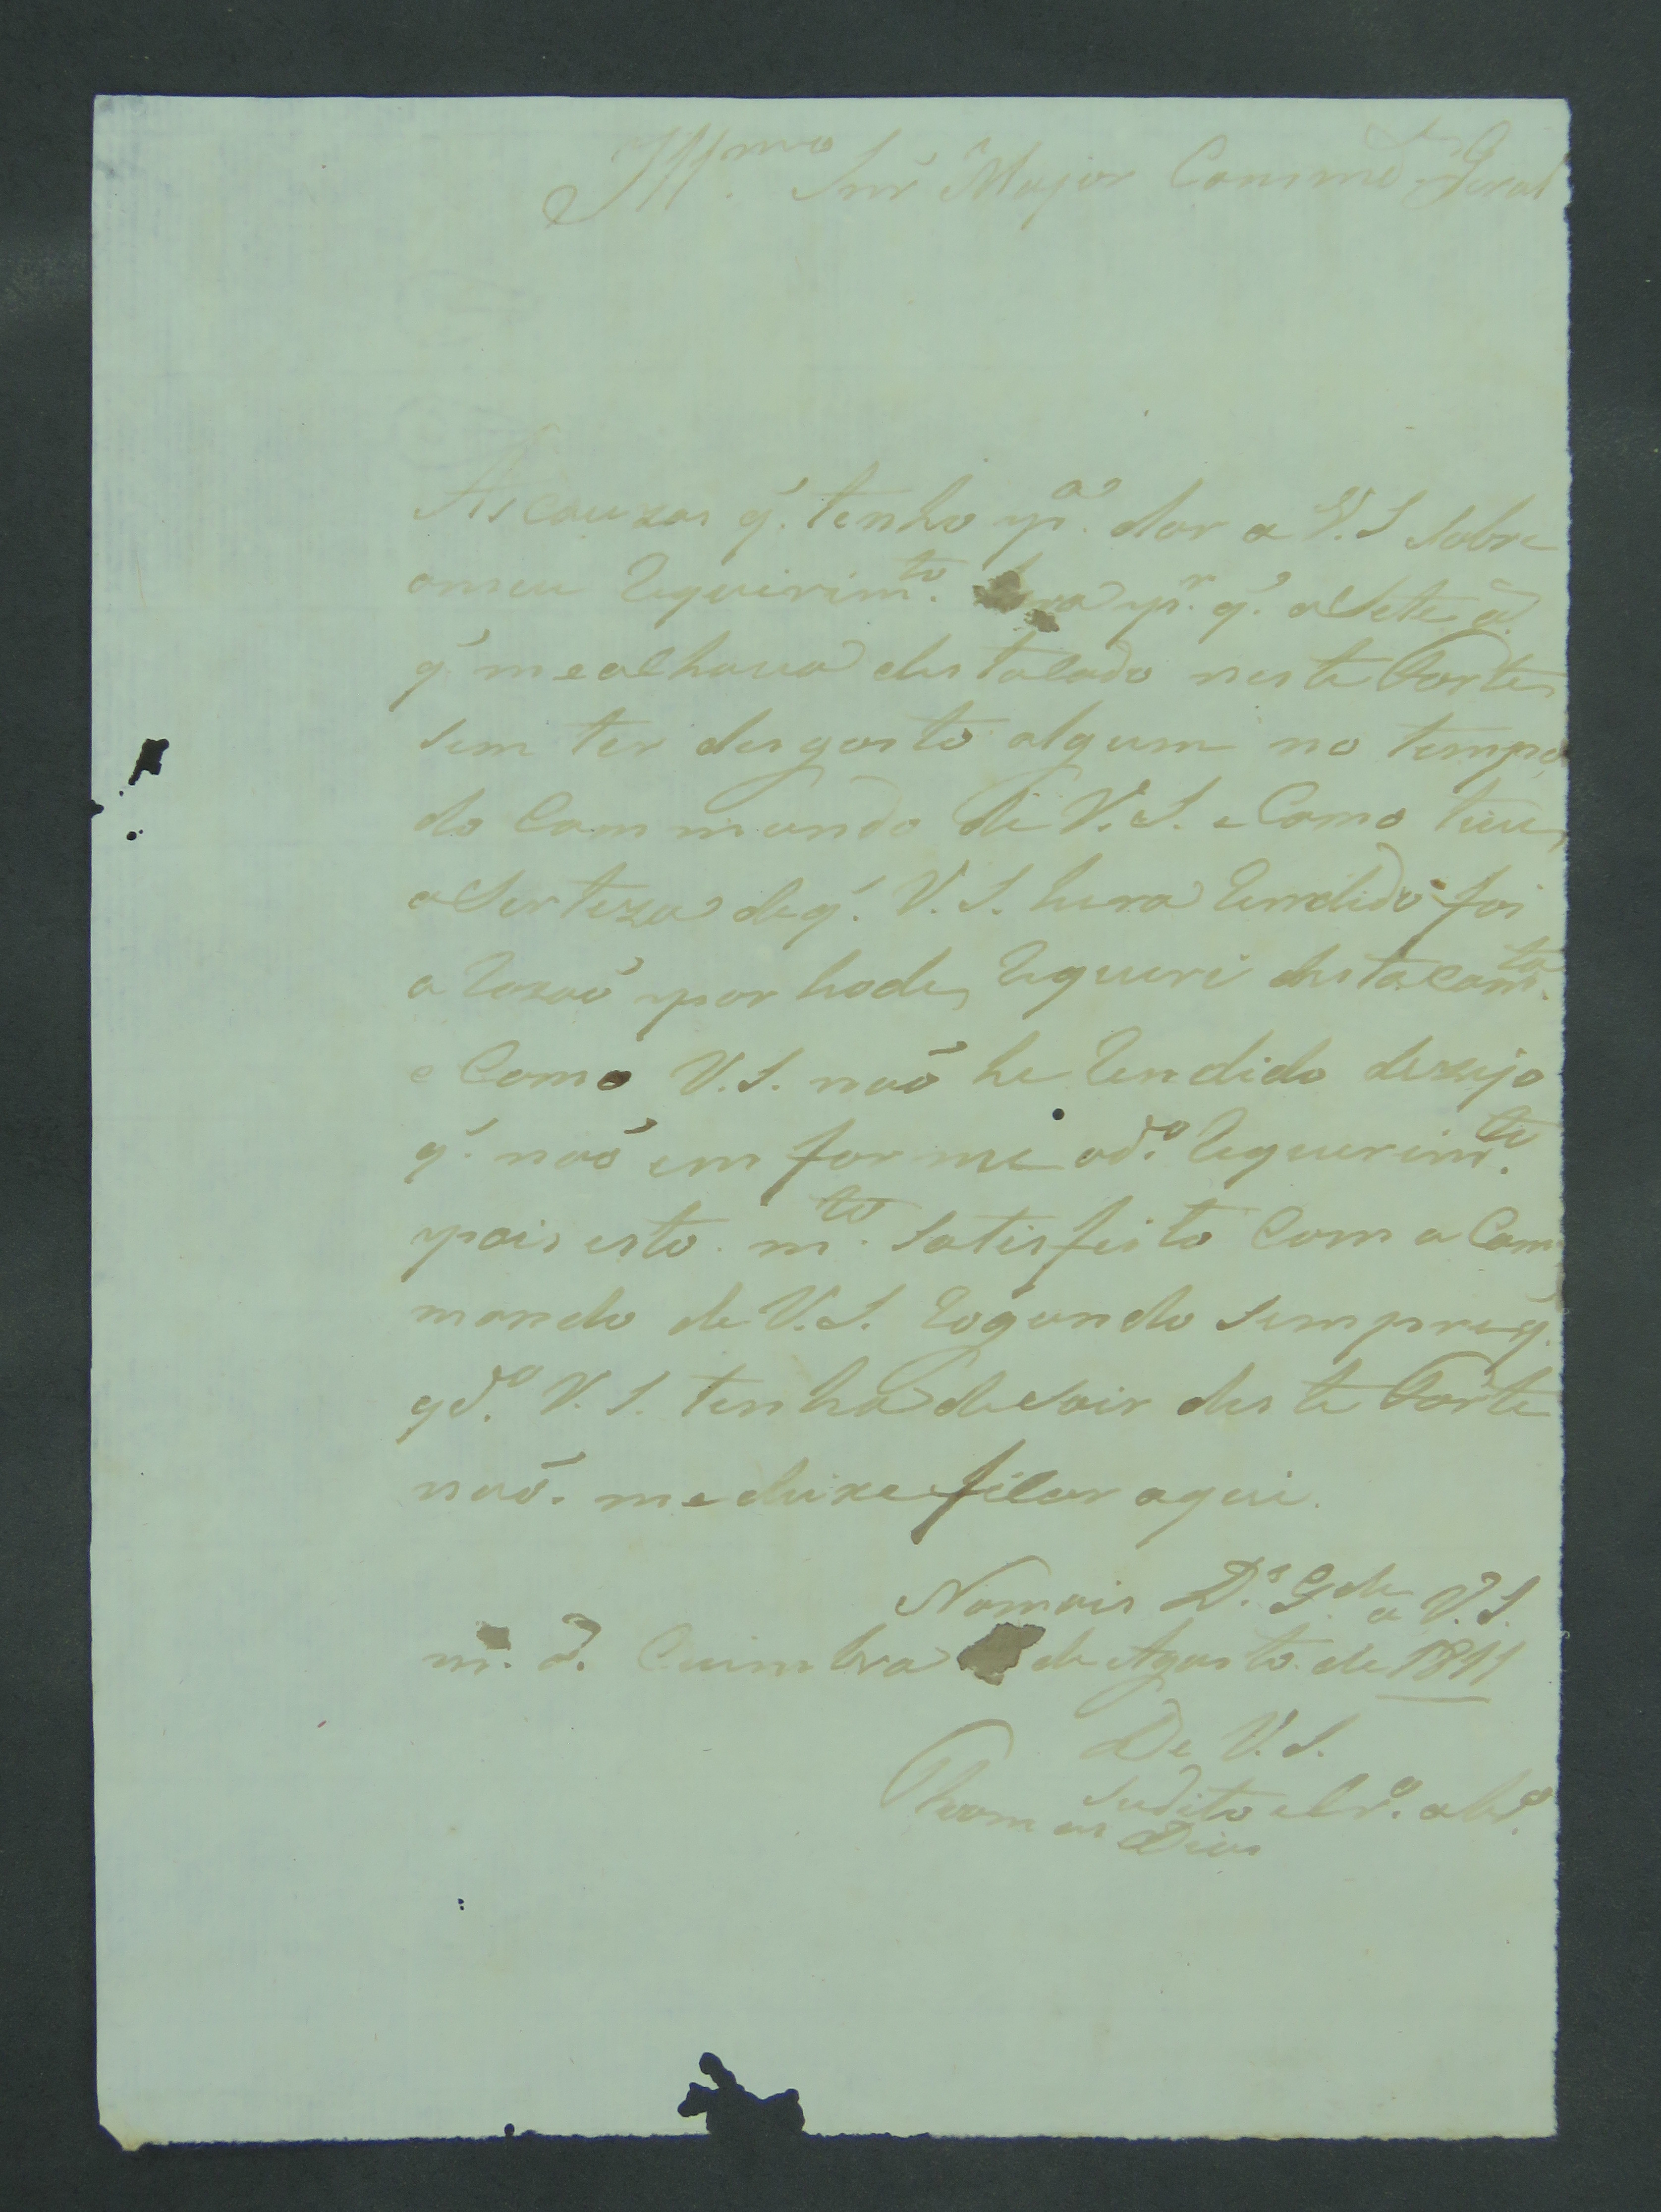 Illmo. Snr Major Commde Geral
As cauzas q'. tenho pa. dar a V.S sobre
omeu Requirimto. pr. q'. a Sete a.
q' me achava destacado neste Forte
sem ter desgosto algum no tempo
do Commando de V.S. e Como tive
a Serteza deq'. V.S. hera Rendido foi
a Razaõ por hode Requeri destacamto.
e Como V.S. naõ he Rendido dezejo
q'. naõ em forme od.o Requerimto.
pois esto mto. satisfeito Com a Com
mando de V.S. Rogando sempre q.
qdo. V.S. tenha de sair deste Forte
naõ. me deixe ficar aqui.
Nomais Ds. Gde a V.S.
m. a. Cuimbra de Agosto de
De V.S.
Sudito e Cro. abo.
Thomas Dias